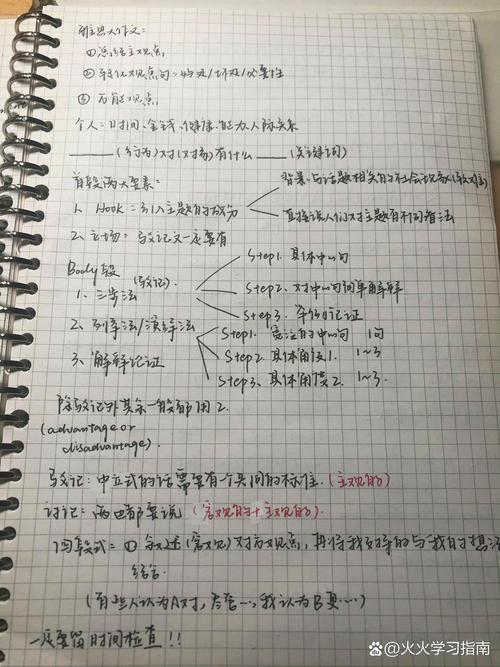 雅思大作文:
① 总结主观点,
② 转化观点句:好处/坏处/必要性
③ 万能观点,
个人:时间、金钱、健康、能力、人际关系
____(行为)对(对象)有什么____(关键词)
首段两大要素:
1. Hook:引入主题的成分
背景:与话题相关的社会现象(较难)
直接说人们对主题有不同看法
2. 立场:议论文一定要有
Body段
1、三步法
Step1. 具体中心句
Step2. 对中心句简单解释
Step3. 举例论证
2、列举法/演绎法
Step1. 宽泛的中心句 1句
Step2. 具体角度1. 1~3
Step3、具体角度2. 1~3.
3、解释论证
除议论外其余一般都用2.
(advantage or
disadvantage).
议论:中立式的话需要有个共同的标准.(主观的)
讨论:两边都要说(客观的+主观的)
四段式:① 叙述(客观)对方观点,再将我支持的与我的想法
结合.
(有些人认为A对,尽管…,我认为B更…)
一定要留时间检查!!
火火学习指南